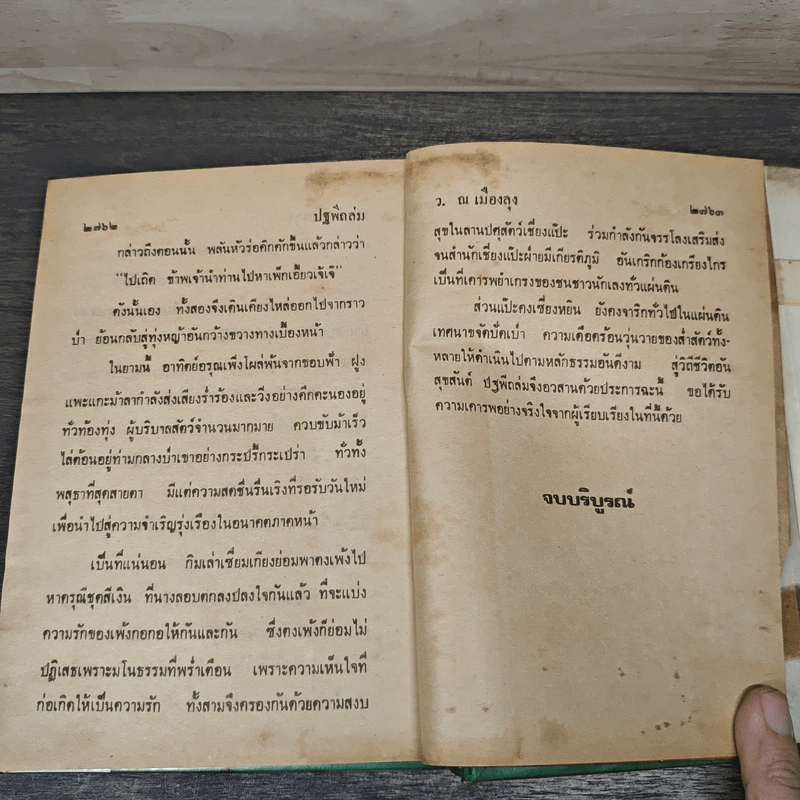 ๒๗๖๒
ปฐพีถล่ม
กล่าวถึงตอนนั้น พลันหัวร่อคิกคักขึ้นแล้วกล่าวว่า
"ไปเถิด ข้าพเจ้านำท่านไปหาเพ็กเอี้ยวเจ้เจ๊"
ดังนั้นเอง ทั้งสองจึงเดินเคียงไหล่ออกไปจากราว
ป่า ย้อนกลับสู่ทุ่งหญ้าอันกว้างขวางทางเบื้องหน้า
ในยามนี้ อาทิตย์อรุณเพิ่งโผล่พ้นจากขอบฟ้า ฝูง
แพะแกะม้าลากำลังส่งเสียงร่ำร้องและวิ่งอย่างคึกคะนองอยู่
ทั่วท้องทุ่ง ผู้บริบาลสัตว์จำนวนมากมาย ควบขับม้าเร็ว
ไล่ต้อนอยู่ท่ามกลางป่าเขาอย่างกระปรี้กระเปร่า ทั่วทั้ง
พสุธาที่สุดสายตา มีแต่ความสดชื่นรื่นเริงที่รอรับวันใหม่
เพื่อนำไปสู่ความจำเริญรุ่งเรืองในอนาคตภาคหน้า
เป็นที่แน่นอน กิมเล่าเซี่ยมเกียงย่อมพาตงเพ้งไป
หาดรุณีชุดสีเงิน ที่นางลอบตกลงปลงใจกันแล้ว ที่จะแบ่ง
ความรักของเพ้งกอกอให้กันและกัน ซึ่งตงเพ้งก็ย่อมไม่
ปฏิเสธเพราะมโนธรรมที่พร่ำเตือน เพราะความเห็นใจที่
ก่อเกิดให้เป็นความรัก ทั้งสามจึงครองกันด้วยความสงบ
ว. ณ เมืองลุง
๒๗๖๓
สุขในลานปศุสัตว์เชี่ยงแป๊ะ ร่วมกำลังกันจรรโลงเสริมส่ง
จนสำนักเชี่ยงแป๊ะฝ่ายมีเกียรติภูมิ อันเกริกก้องเกรียงไกร
เป็นที่เคารพยำเกรงของชนชาวนักเลงทั่วแผ่นดิน
ส่วนแป๊ะคงเซี่ยงหยิน ยังคงจาริกทั่วไปในแผ่นดิน
เทศนาขจัดปัดเป่า ความเดือดร้อนวุ่นวายของส่ำสัตว์ทั้ง-
หลายให้ดำเนินไปตามหลักธรรมอันดีงาม สู่วิถีชีวิตอัน
สุขสันต์ ปฐพีถล่มจึงอวสานด้วยประการฉะนี้ ขอได้รับ
ความเคารพอย่างจริงใจจากผู้เรียบเรียงในที่นี้ด้วย
จบบริบูรณ์